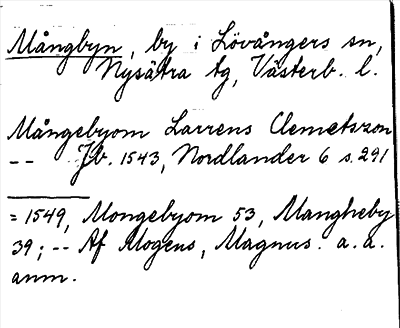 Mångbyn, by i Lövångers sn,
Nysätra tg, Västerb. l.
Mångebyom Larrens Clemetszon
-- Jb. 1543, Nordlander 6 s. 291
= 1549, Mongebyom 53, Mangheby
39; -- Af Mogens, Magnus. a. a.
anm.